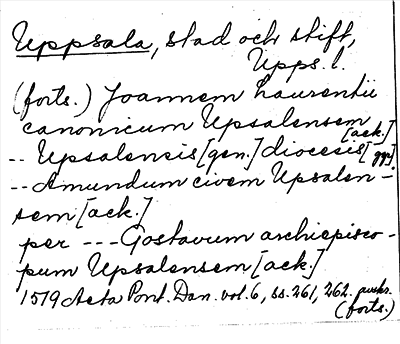 Uppsala, stad och stift,
Upps. l.
(forts.) Joannem Laurentii
canonicum Upsalensem
[ack.]
-- Upsalensis [gen.] diocesis [gen.]
-- Amundum civem Upsalen-
sem [ack.]
per --- Gostavum archiepisco-
pum Upsalensem [ack.]
1519 Acta Pont. Dan. vol. 6, ss. 261, 262.
(forts.)